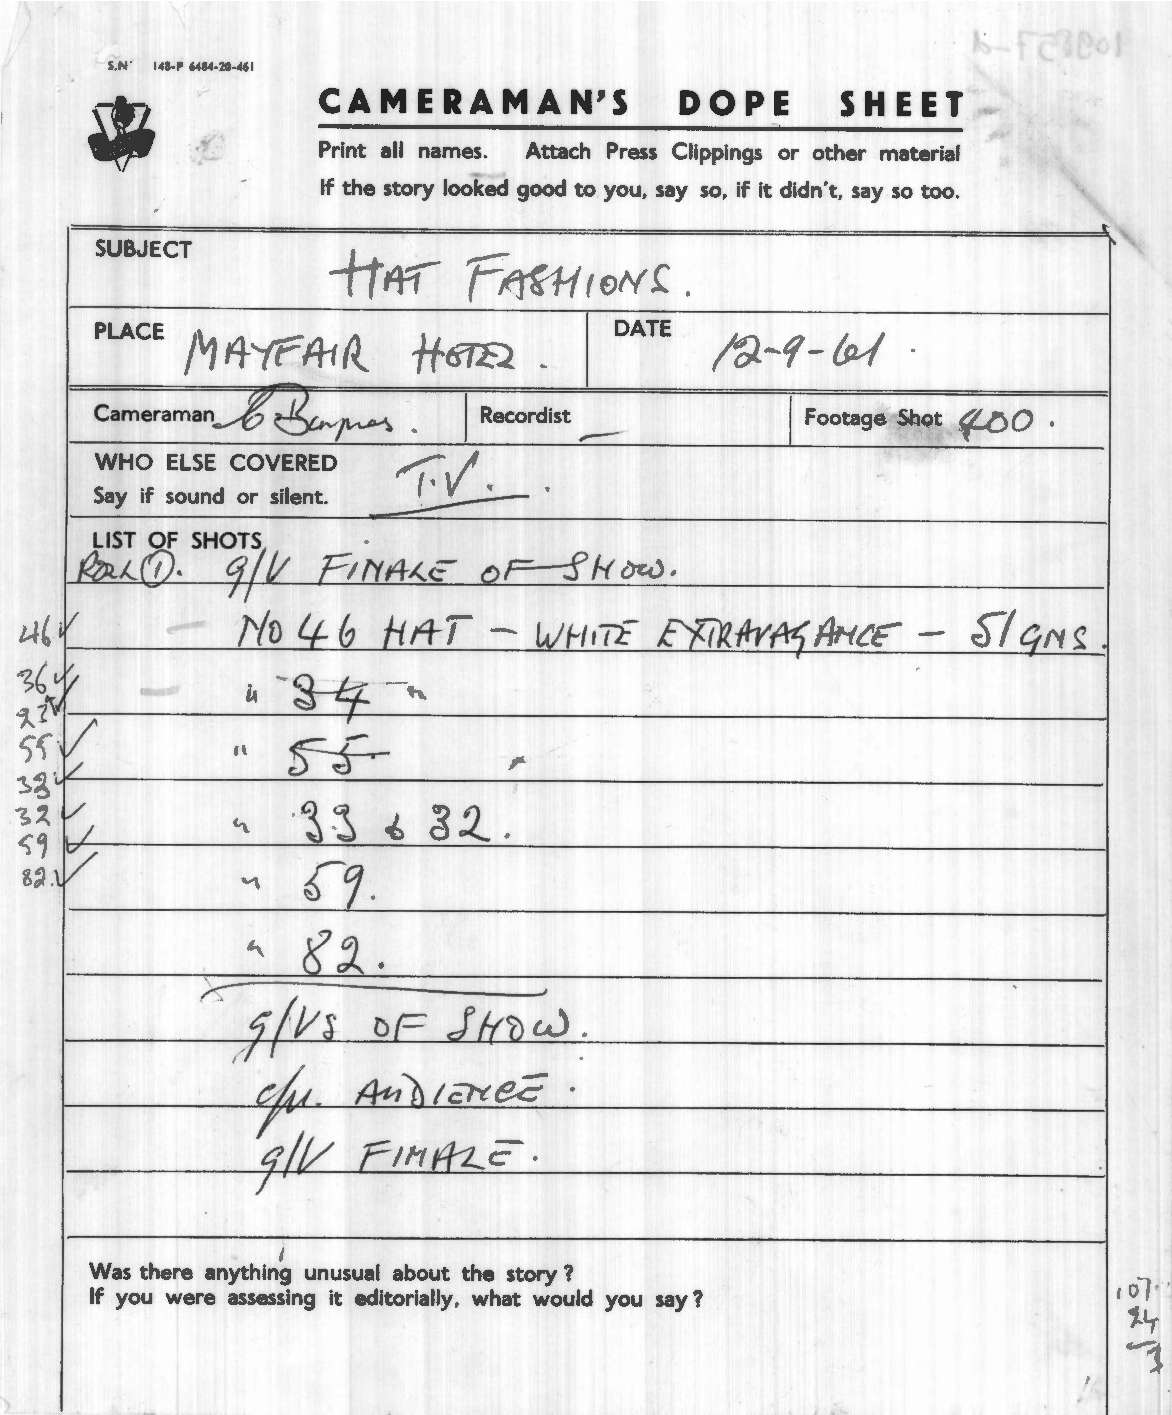 S.N° 148-P 6484-28-461
CAMERAMAN'S DOPE SHEET
Print all names. Attach Press Clippings or other material
If the story looked good to you, say so, if it didn't, say so too.
SUBJECT
HAT FASHIONS.
PLACE MAYFAIR HOTEL. DATE 12-9-61.
Cameraman C Barnes. Recordist — Footage Shot 400.
WHO ELSE COVERED
Say if sound or silent. T.V.
LIST OF SHOTS
ROLL 1. g/V FINALE OF SHOW.
46 ✓ No 46 HAT - WHITE EXTRAVAGANCE - 51 GNS.
36 ✓ " 34 "
23 ✓
55 ✓ " 55.
33 ✓
32 ✓ " 33 & 32.
59 ✓
82. ✓ " 59.
" 82.
g/VS OF SHOW.
c/u. AUDIENCE.
g/V FINALE.
Was there anything unusual about the story?
If you were assessing it editorially, what would you say?
107
24
3